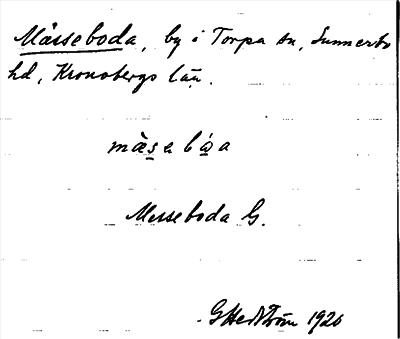 Mässeboda, by i Torpa sn, Sunnerbo
hd, Kronobergs län.
màsabóa
Messeboda G.
G Hedström 1926